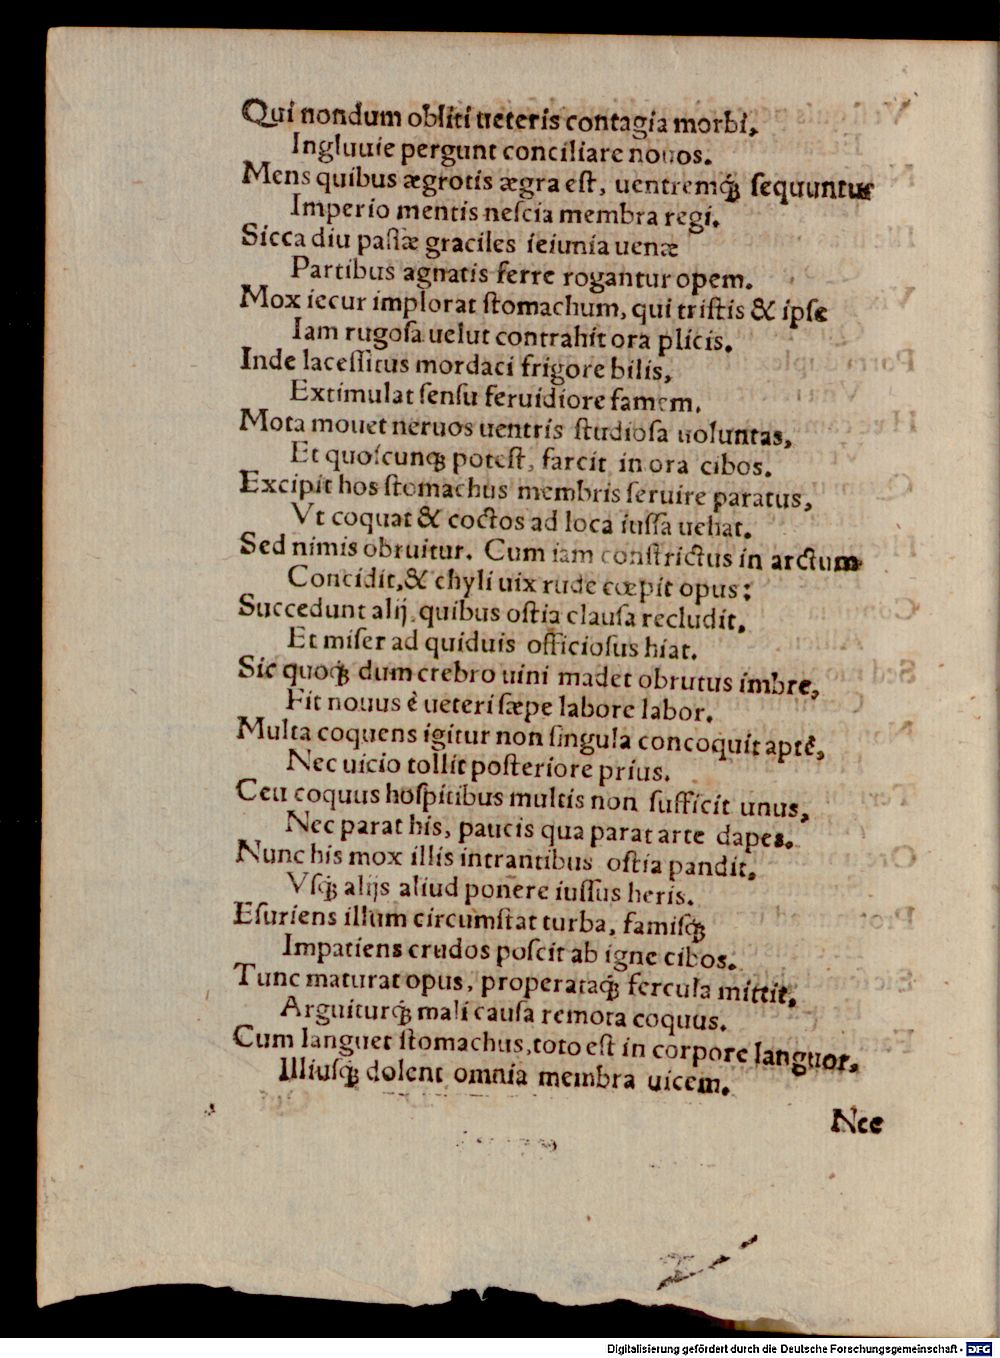 Qui nondum obliti ueteris contagia morbi,
Ingluuie pergunt conciliare nouos.
Mens quibus ægrotis ægra est, uentremq́ꝫ sequuntur
Imperio mentis nescia membra regi.
Sicca diu passæ graciles ieiunia uenæ
Partibus agnatis ferre rogantur opem.
Mox iecur implorat stomachum, qui tristis & ipse
Iam rugosa uelut contrahit ora plicis.
Inde lacessitus mordaci frigore bilis,
Extimulat sensu feruidiore famem.
Mota mouet neruos uentris studiosa uoluntas,
Et quoscunqꝫ potest, farcit in ora cibos.
Excipit hos stomachus membris seruire paratus,
Vt coquat & coctos ad loca iussa uehat.
Sed nimis obruitur. Cum iam constrictus in arctum
Concidit,& chyli uix rude cœpit opus:
Succedunt alij, quibus ostia clausa recludit,
Et miser ad quiduis officiosus hiat.
Sic quoq́ꝫ dum crebro uini madet obrutus imbre,
Fit nouus è ueteri sæpe labore labor.
Multa coquens igitur non singula concoquit aptè,
Nec uicio tollit posteriore prius.
Ceu coquus hospitibus multis non sufficit unus,
Nec parat his, paucis qua parat arte dapes.
Nunc his mox illis intrantibus ostia pandit,
Vsq́ꝫ alijs aliud ponere iussus heris.
Esuriens illum circumstat turba, famisq́ꝫ
Impatiens crudos poscit ab igne cibos.
Tunc maturat opus, properataq́ꝫ fercula mittit,
Arguiturq́ꝫ mali causa remota coquus.
Cum languet stomachus,toto est in corpore languor,
Illiusq́ꝫ dolent omnia membra uicem.
Nec
Digitalisierung gefördert durch die Deutsche Forschungsgemeinschaft - DFG